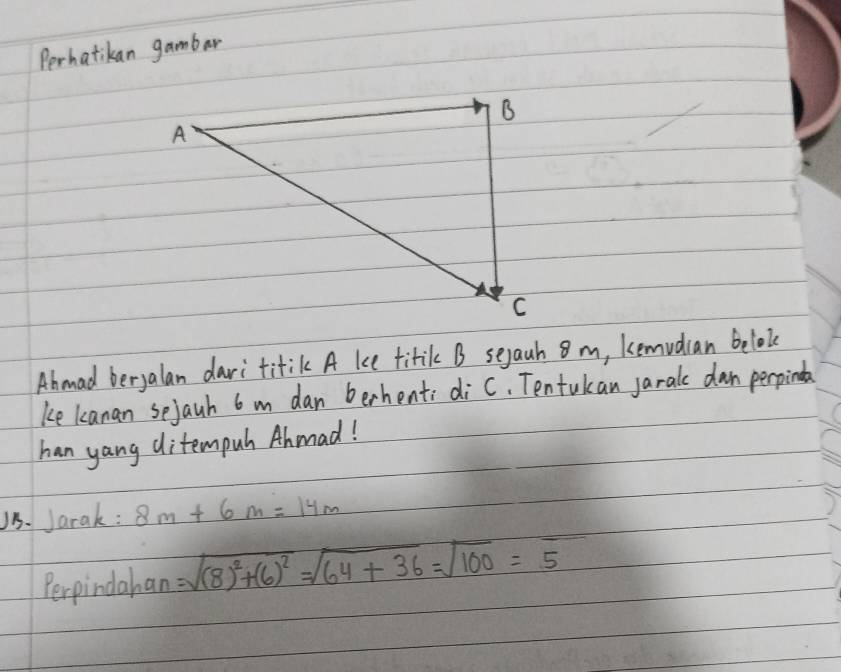 Perhatikan gambar
A
B
C
Ahmad berjalan dari titik A ke titik B sejauh 8 m, kemudian belok
ke kanan sejauh 6 m dan berhenti di C. Tentukan jarak dan perpinda
han yang ditempuh Ahmad!
JB. Jarak: 8 m + 6 m = 14 m
Perpindahan = √(8)²+(6)² = √64 + 36 = √100 = 5